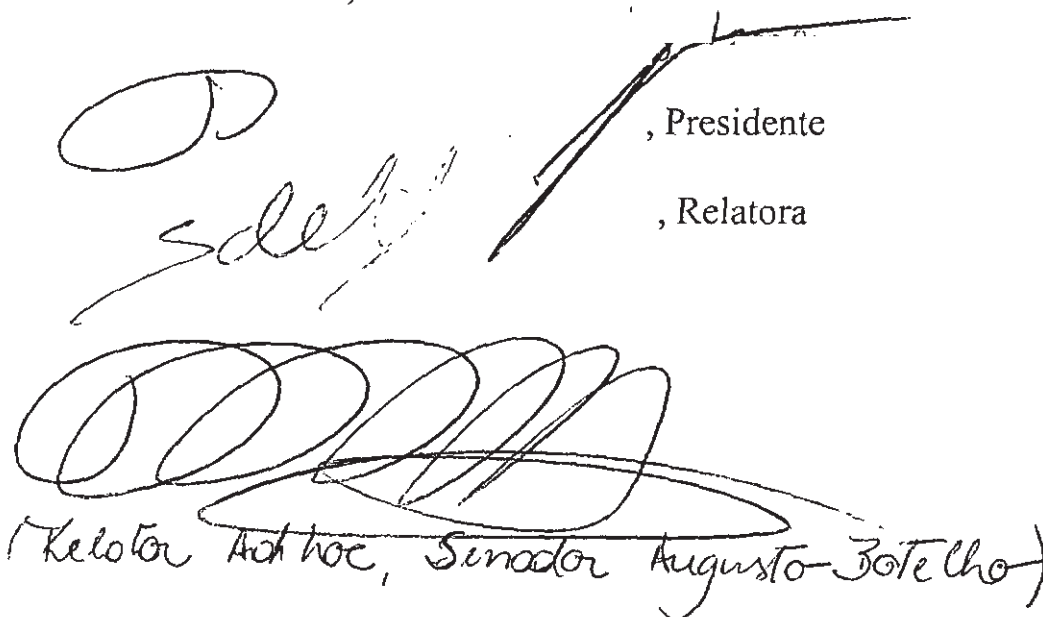 , Presidente
, Relatora
(Relator Ad hoc, Senador Augusto Botelho)